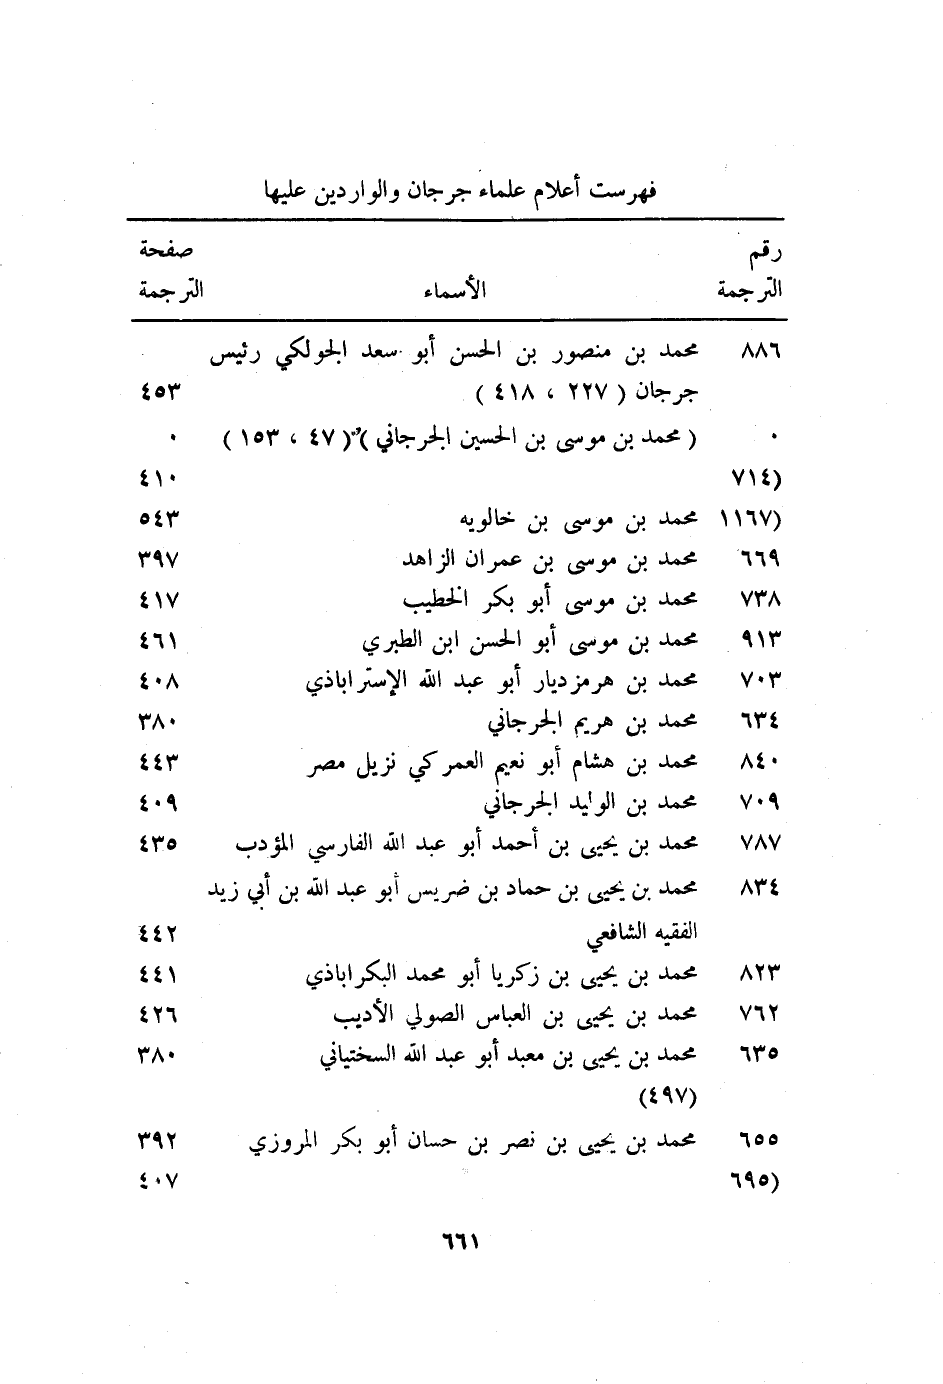 فهرست أعلام علماء جرجان والواردين عليها
رقم صفحة
الترجمة الأسماء الترجمة
٨٨٦ محمد بن منصور بن الحسن أبو سعد الجولكي رئيس
جرجان ( ٢٢٧ ، ٤١٨ ) ٤٥٣
٠ ( محمد بن موسى بن الحسين الجرجاني ) ( ٤٧ ، ١٥٣ ) ٠
(٧١٤ ٤١٠
(١١٦٧ محمد بن موسى بن خالويه ٥٤٣
٦٦٩ محمد بن موسى بن عمران الزاهد ٣٩٧
٧٣٨ محمد بن موسى أبو بكر الخطيب ٤١٧
٩١٣ محمد بن موسى أبو الحسن ابن الطبري ٤٦١
٧٠٣ محمد بن هرمزديار أبو عبد الله الإستراباذي ٤٠٨
٦٣٤ محمد بن هريم الجرجاني ٣٨٠
٨٤٠ محمد بن هشام أبو نعيم العمركي نزيل مصر ٤٤٣
٧٠٩ محمد بن الوليد الجرجاني ٤٠٩
٧٨٧ محمد بن يحيى بن أحمد أبو عبد الله الفارسي المؤدب ٤٣٥
٨٣٤ محمد بن يحيى بن حماد بن ضريس أبو عبد الله بن أبي زيد
الفقيه الشافعي ٤٤٢
٨٢٣ محمد بن يحيى بن زكريا أبو محمد البكراباذي ٤٤١
٧٦٢ محمد بن يحيى بن العباس الصولي الأديب ٤٢٦
٦٣٥ محمد بن يحيى بن معبد أبو عبد الله السختياني ٣٨٠
(٤٩٧)
٦٥٥ محمد بن يحيى بن نصر بن حسان أبو بكر المروزي ٣٩٢
(٦٩٥ ٤٠٧
٦٦١